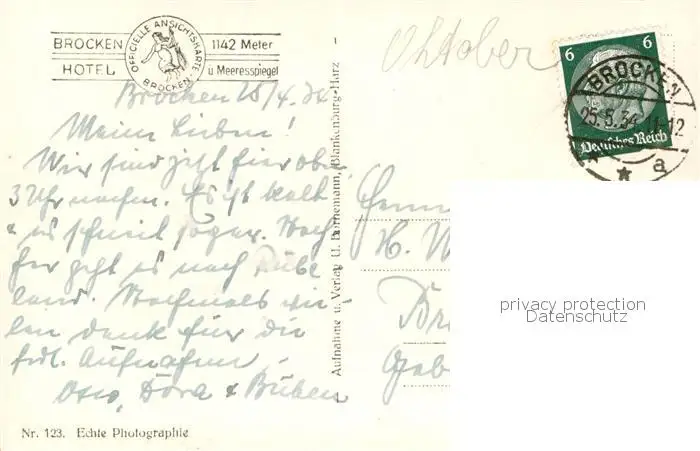 BROCKEN HOTEL
OFFICIELLE ANSICHTSKARTE BROCKEN
1142 Meter
ü Meeresspiegel
Oktober
6 6
Deutsches Reich
BROCKEN
25.5.34. 11-12
a
Brocken 25/4. 34
Meine Lieben!
Wir sind jetzt hier oben
3 Uhr nachm. Es ist kalt
& es schneit sogar. Nach-
her geht es nach Rübe-
land. Nochmals vie-
len Dank für die
frdl. Aufnahme,
Otto, Dora & Buben
Aufnahme u. Verlag U. Bornemann, Blankenburg-Harz
H. W
Nr. 123. Echte Photographie
privacy protection
Datenschutz